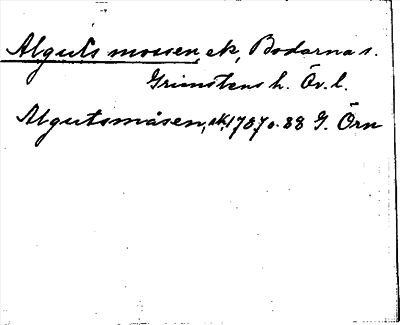 Alguts mossen, ek, Bodarna s.
Grimstens h. Ör. l.
Algutsmåsen, ek, 1787 o. 88 G. Örn